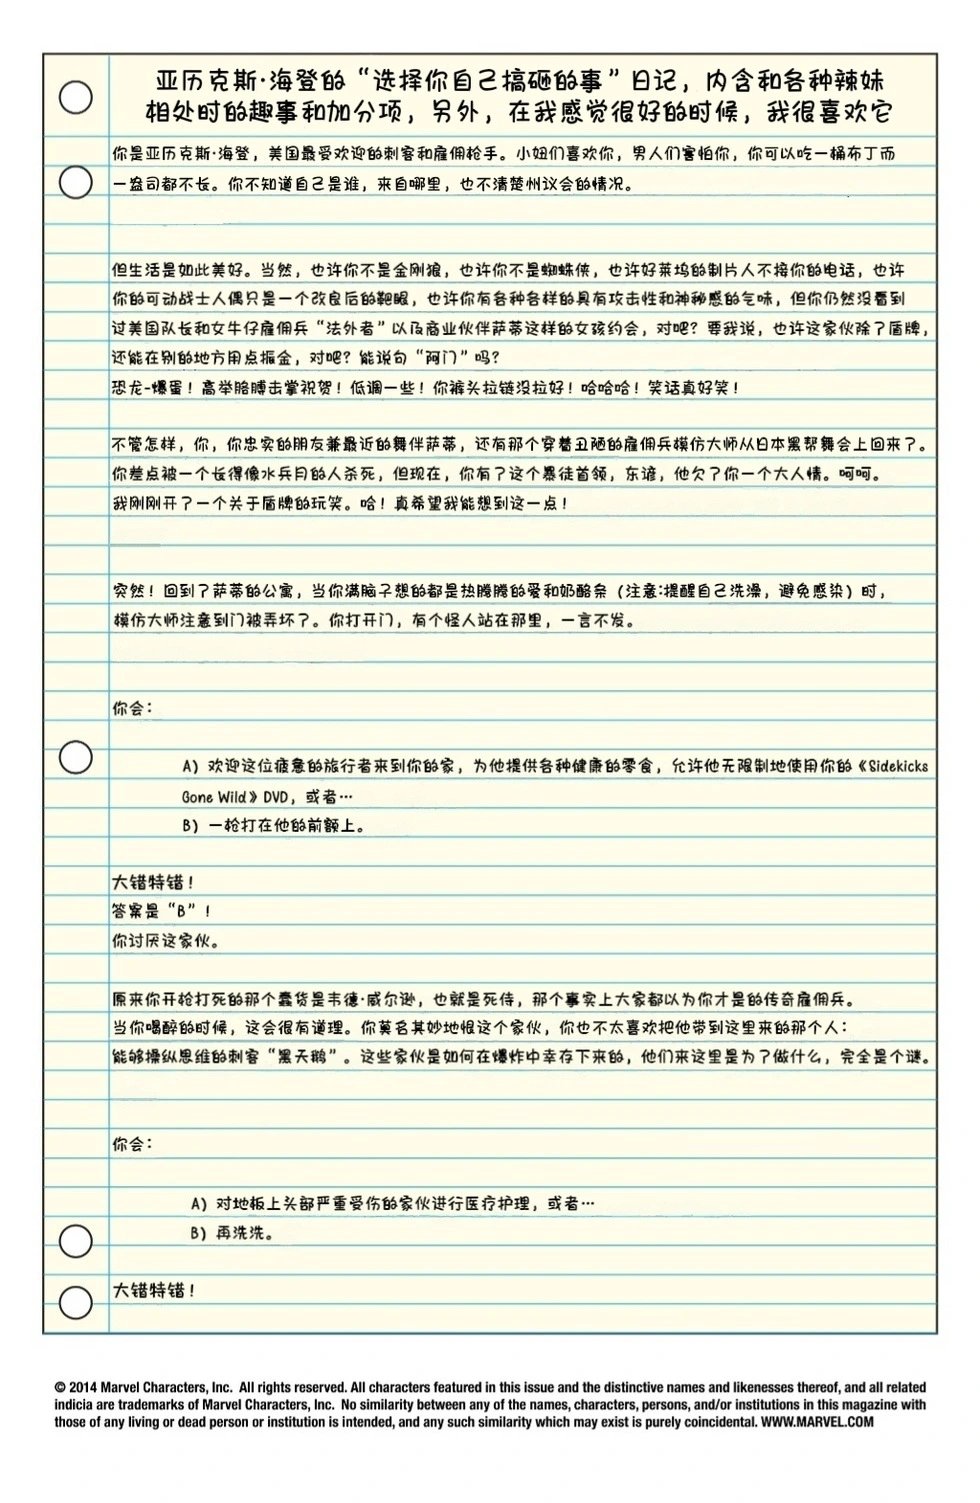 亚历克斯·海登的“选择你自己搞砸的事”日记，内含和各种辣妹
相处时的趣事和加分项，另外，在我感觉很好的时候，我很喜欢它
你是亚历克斯·海登，美国最受欢迎的刺客和雇佣枪手。小妞们喜欢你，男人们害怕你，你可以吃一桶布丁而
一盎司都不长。你不知道自己是谁，来自哪里，也不清楚州议会的情况。
但生活是如此美好。当然，也许你不是金刚狼，也许你不是蜘蛛侠，也许好莱坞的制片人不接你的电话，也许
你的可动战士人偶只是一个改良后的靶眼，也许你有各种各样的具有攻击性和神秘感的气味，但你仍然没看到
过美国队长和女牛仔雇佣兵“法外者”以及商业伙伴萨蒂这样的女孩约会，对吧？要我说，也许这家伙除了盾牌，
还能在别的地方用点振金，对吧？能说句“阿门”吗？
恐龙-爆蛋！高举胳膊击掌祝贺！低调一些！你裤头拉链没拉好！哈哈哈！笑话真好笑！
不管怎样，你，你忠实的朋友兼最近的舞伴萨蒂，还有那个穿着丑陋的雇佣兵模仿大师从日本黑帮舞会上回来了。
你差点被一个长得像水兵月的人杀死，但现在，你有了这个暴徒首领，东谚，他欠了你一个大人情。呵呵。
我刚刚开了一个关于盾牌的玩笑。哈！真希望我能想到这一点！
突然！回到了萨蒂的公寓，当你满脑子想的都是热腾腾的爱和奶酪条（注意:提醒自己洗澡，避免感染）时，
模仿大师注意到门被弄坏了。你打开门，有个怪人站在那里，一言不发。
你会：
A）欢迎这位疲惫的旅行者来到你的家，为他提供各种健康的零食，允许他无限制地使用你的《Sidekicks
Gone Wild》DVD，或者…
B）一枪打在他的前额上。
大错特错！
答案是“B”！
你讨厌这家伙。
原来你开枪打死的那个蠢货是韦德·威尔逊，也就是死侍，那个事实上大家都以为你才是的传奇雇佣兵。
当你喝醉的时候，这会很有道理。你莫名其妙地恨这个家伙，你也不太喜欢把他带到这里来的那个人：
能够操纵思维的刺客“黑天鹅”。这些家伙是如何在爆炸中幸存下来的，他们来这里是为了做什么，完全是个谜。
你会：
A）对地板上头部严重受伤的家伙进行医疗护理，或者…
B）再洗洗。
大错特错！
© 2014 Marvel Characters, Inc. All rights reserved. All characters featured in this issue and the distinctive names and likenesses thereof, and all related
indicia are trademarks of Marvel Characters, Inc. No similarity between any of the names, characters, persons, and/or institutions in this magazine with
those of any living or dead person or institution is intended, and any such similarity which may exist is purely coincidental. WWW.MARVEL.COM